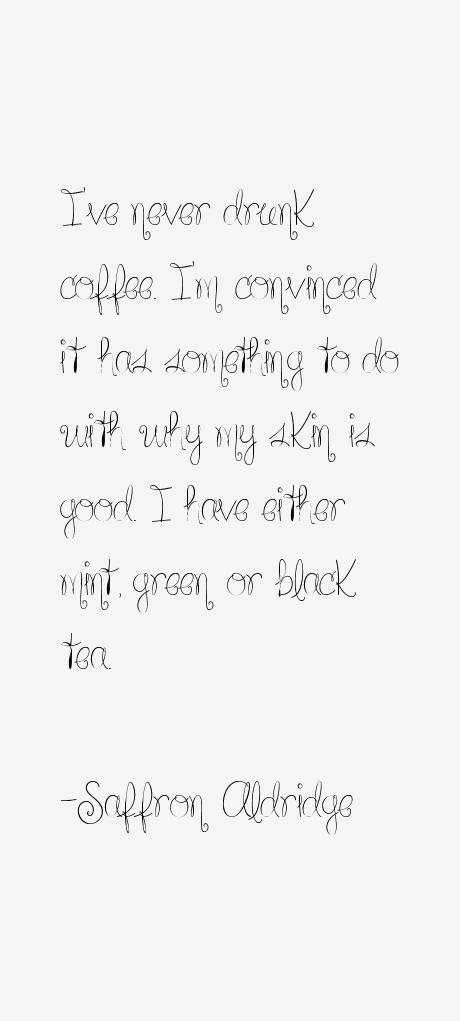 I've never drunk
coffee. I'm convinced
it has something to do
with why my skin is
good. I have either
mint, green or black
tea.
-Saffron Aldridge